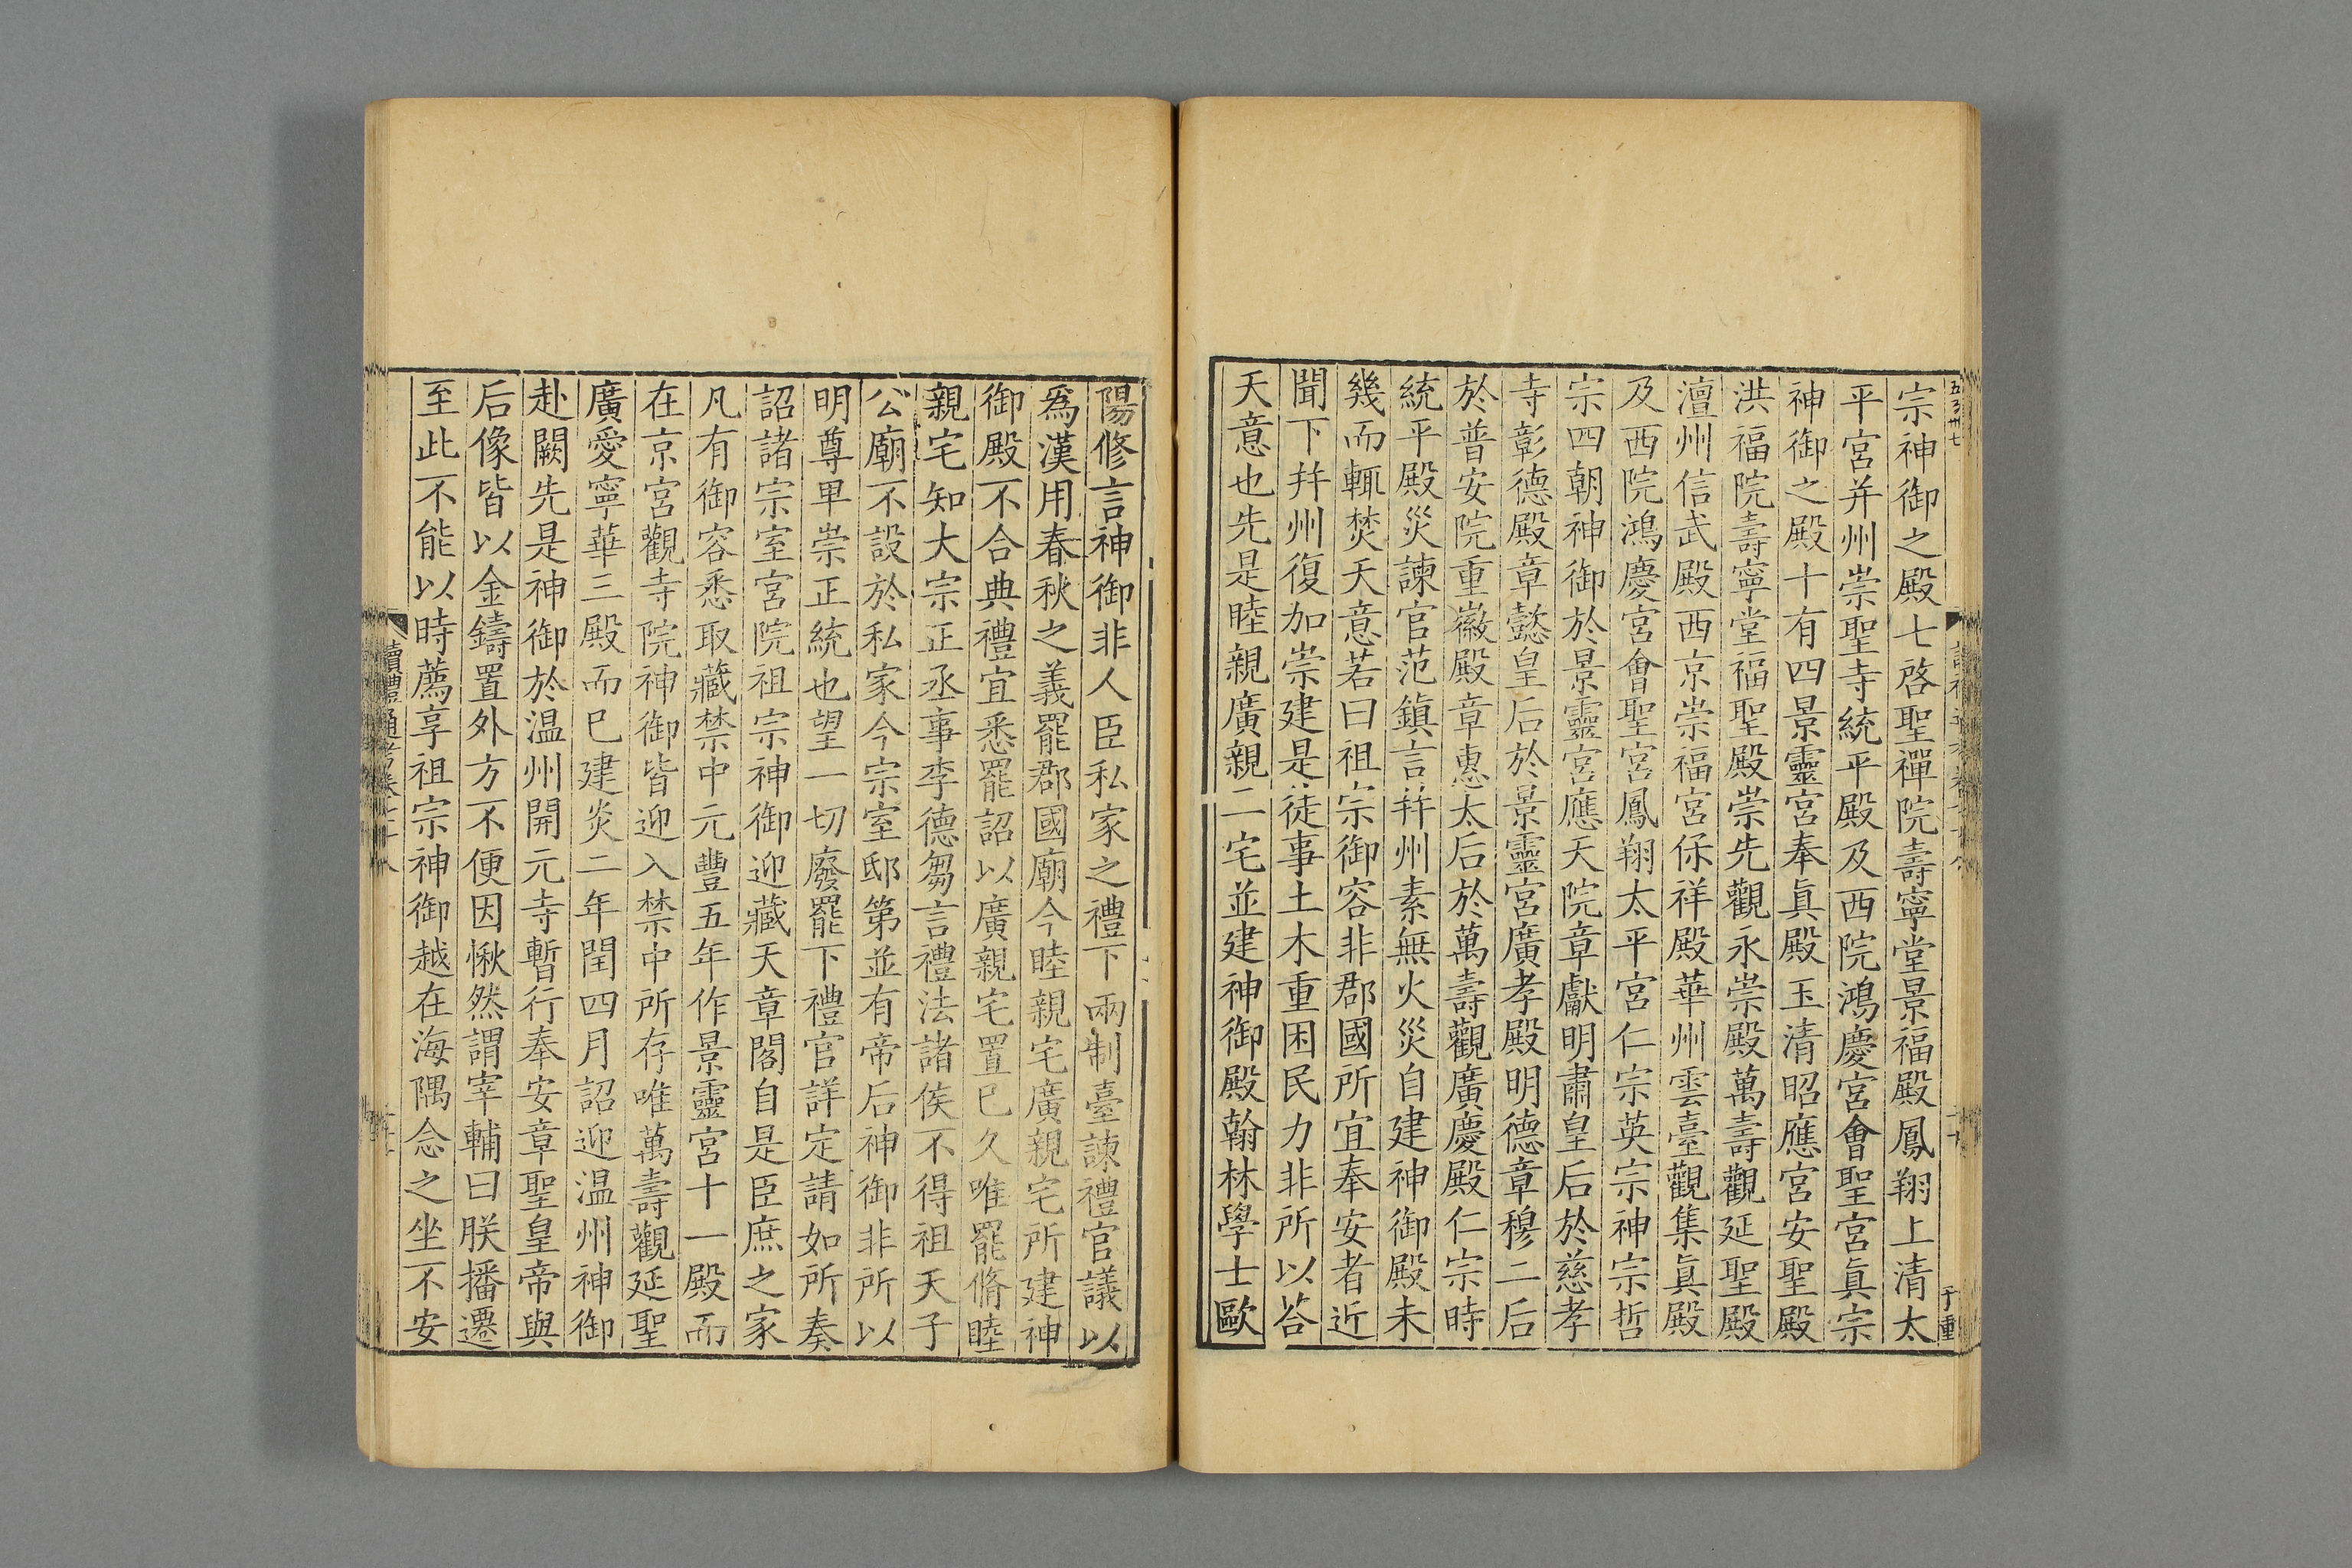 宗神御之殿七啓聖禪院壽寧堂景福殿鳳翔上清太
平宮并州崇聖寺統平殿及西院鴻慶宮會聖宮眞宗
神御之殿十有四景靈宮奉眞殿玉清昭應宮安聖殿
洪福院壽寧堂福聖殿崇先觀永崇殿萬壽觀延聖殿
澶州信武殿西京崇福宮保祥殿華州雲臺觀集眞殿
及西院鴻慶宮會聖宮鳳翔太平宮仁宗英宗神宗哲
宗四朝神御於景靈宮應天院章獻明肅皇后於慈孝
寺彰德殿章懿皇后於景靈宮廣孝殿明德章穆二后
於普安院重徽殿章惠太后於萬壽觀廣慶殿仁宗時
統平殿災諫官范鎮言并州素無火災自建神御殿未
幾而輒焚天意若曰祖宗御容非郡國所宜奉安者近
聞下并州復加崇建是徒事土木重困民力非所以荅
天意也先是睦親廣親二宅並建神御殿翰林學士歐
陽修言神御非人臣私家之禮下兩制臺諫禮官議以
爲漢用春秋之義罷郡國廟今睦親宅廣親宅所建神
御殿不合典禮宜悉罷詔以廣親宅置已久唯罷脩睦
親宅知大宗正丞事李德芻言禮法諸侯不得祖天子
公廟不設於私家今宗室邸第並有帝后神御非所以
明尊卑崇正統也望一切廢罷下禮官詳定請如所奏
詔諸宗室宮院祖宗神御迎藏天章閣自是臣庶之家
凡有御容悉取藏禁中元豐五年作景靈宮十一殿而
在京宮觀寺院神御皆迎入禁中所存唯萬壽觀延聖
廣愛寧華三殿而已建炎二年閏四月詔迎温州神御
赴闕先是神御於温州開元寺暫行奉安章聖皇帝與
后像皆以金鑄置外方不便因愀然謂宰輔曰朕播遷
至此不能以時薦享祖宗神御越在海隅念之坐不安
讀禮通考卷